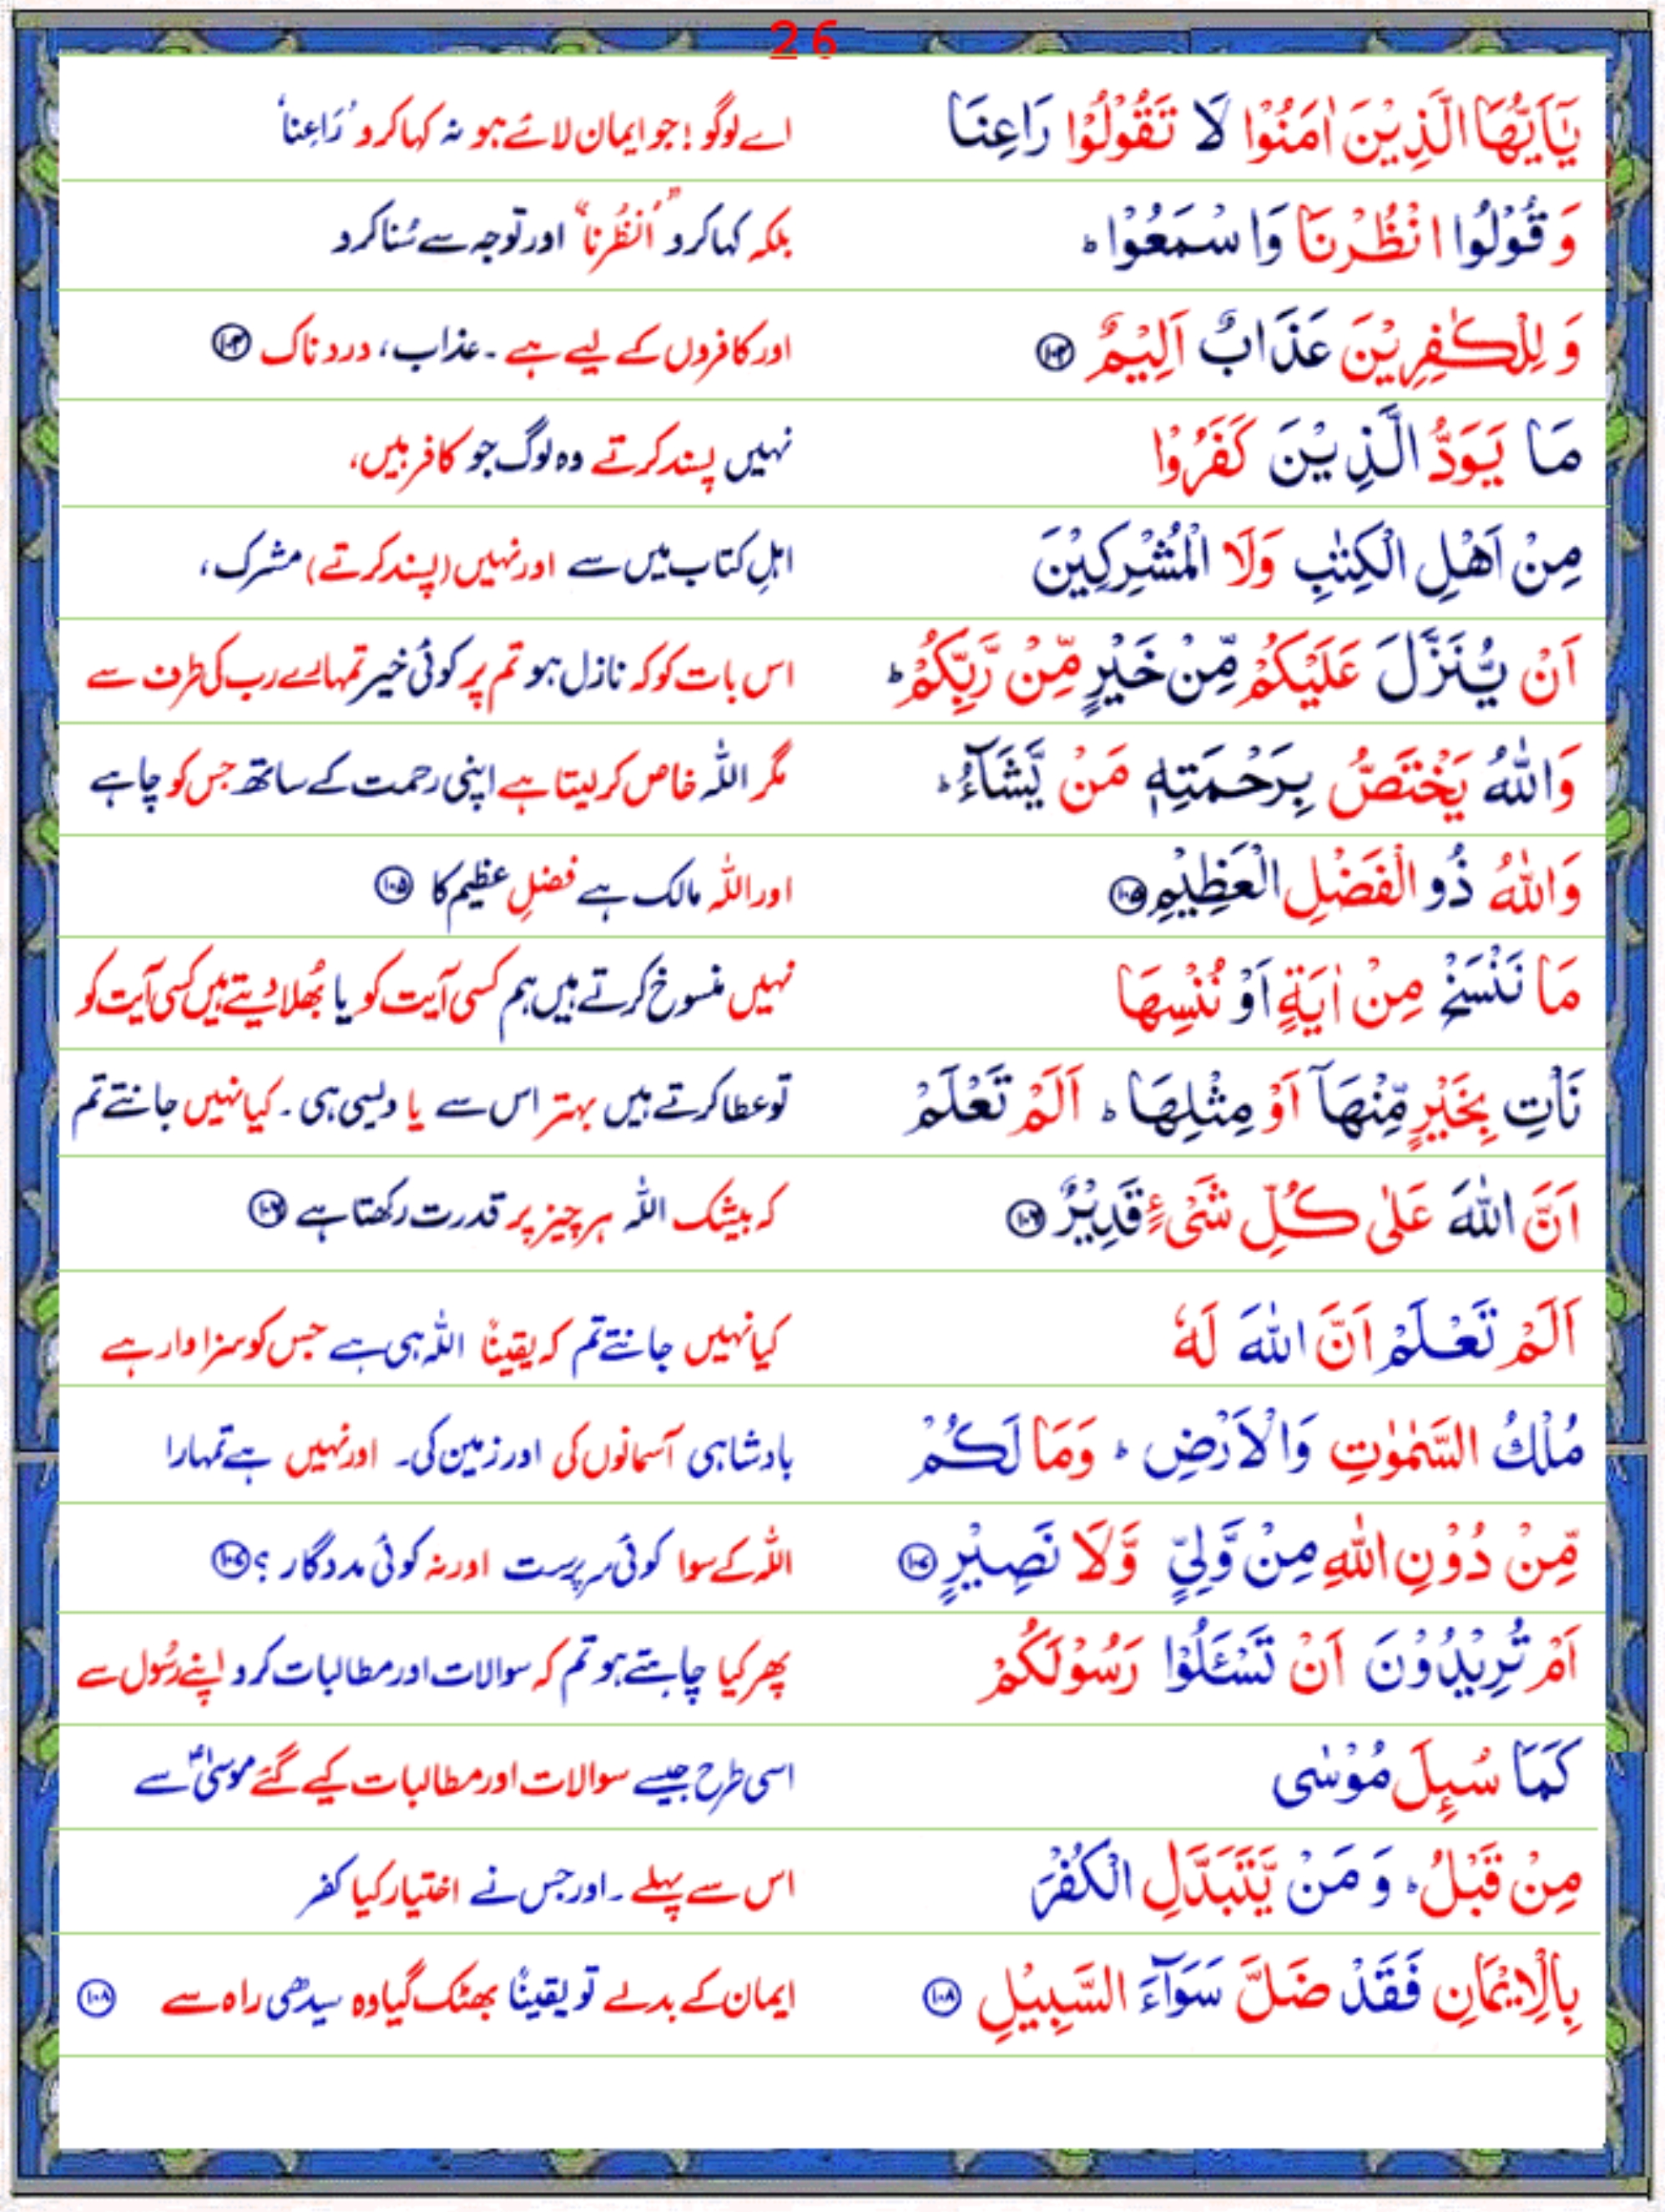 26
يٰۤاَيُّهَا الَّذِيْنَ اٰمَنُوْا لَا تَقُوْلُوْا رَاعِنَا اے لوگو ! جو ایمان لائے ہو نہ کہا کرو ’رَاعِنا‘
وَ قُوْلُوا انْظُرْنَا وَا سْمَعُوْا ؕ بلکہ کہا کرو ”اُنظُرنا“ اور توجہ سے سُنا کرو
وَ لِلْكٰفِرِيْنَ عَذَابٌ اَلِيْمٌ ۝۱۰۴ اور کافروں کے لیے ہے ۔ عذاب، دردناک ۝۱۰۴
مَا يَوَدُّ الَّذِيْنَ كَفَرُوْا نہیں پسند کرتے وہ لوگ جو کافر ہیں،
مِنْ اَهْلِ الْكِتٰبِ وَلَا الْمُشْرِكِيْنَ اہلِ کتاب میں سے اور نہیں (پسند کرتے) مشرک ،
اَنْ يُّنَزَّلَ عَلَيْكُمْ مِّنْ خَيْرٍ مِّنْ رَّبِّكُمْ ؕ اس بات کو کہ نازل ہو تم پر کوئی خیر تمہارے رب کی طرف سے
وَاللّٰهُ يَخْتَصُّ بِرَحْمَتِهٖ مَنْ يَّشَآءُ ؕ مگر اللہ خاص کر لیتا ہے اپنی رحمت کے ساتھ جس کو چاہے
وَاللّٰهُ ذُو الْفَضْلِ الْعَظِيْمِ ۝۱۰۵ اور اللہ مالک ہے فضلِ عظیم کا ۝۱۰۵
مَا نَنْسَخْ مِنْ اٰيَةٍ اَوْ نُنْسِهَا نہیں منسوخ کرتے ہیں ہم کسی آیت کو یا بُھلا دیتے ہیں کسی آیت کو
نَاْتِ بِخَيْرٍ مِّنْهَآ اَوْ مِثْلِهَا ؕ اَلَمْ تَعْلَمْ تو عطا کرتے ہیں بہتر اس سے یا ویسی ہی ۔ کیا نہیں جانتے تم
اَنَّ اللّٰهَ عَلٰى كُلِّ شَىْءٍ قَدِيْرٌ ۝۱۰۶ کہ بیشک اللہ ہر چیز پر قدرت رکھتا ہے ۝۱۰۶
اَلَمْ تَعْلَمْ اَنَّ اللّٰهَ لَهٗ کیا نہیں جانتے تم کہ یقیناً اللہ ہی ہے جس کو سزاوار ہے
مُلْكُ السَّمٰوٰتِ وَالْاَرْضِ ؕ وَمَا لَكُمْ بادشاہی آسمانوں کی اور زمین کی۔ اور نہیں ہے تمہارا
مِّنْ دُوْنِ اللّٰهِ مِنْ وَّلِيٍّ وَّلَا نَصِيْرٍ ۝۱۰۷ اللہ کے سوا کوئی سرپرست اور نہ کوئی مددگار ؟ ۝۱۰۷
اَمْ تُرِيْدُوْنَ اَنْ تَسْئَلُوْا رَسُوْلَكُمْ پھر کیا چاہتے ہو تم کہ سوالات اور مطالبات کرو اپنے رسُول سے
كَمَا سُىِٕلَ مُوْسٰى اسی طرح جیسے سوالات اور مطالبات کیے گئے موسیٰؑ سے
مِنْ قَبْلُ ؕ وَ مَنْ يَّتَبَدَّلِ الْكُفْرَ اس سے پہلے ۔ اور جس نے اختیار کیا کفر
بِالْاِيْمَانِ فَقَدْ ضَلَّ سَوَآءَ السَّبِيْلِ ۝۱۰۸ ایمان کے بدلے تو یقیناً بھٹک گیا وہ سیدھی راہ سے ۝۱۰۸